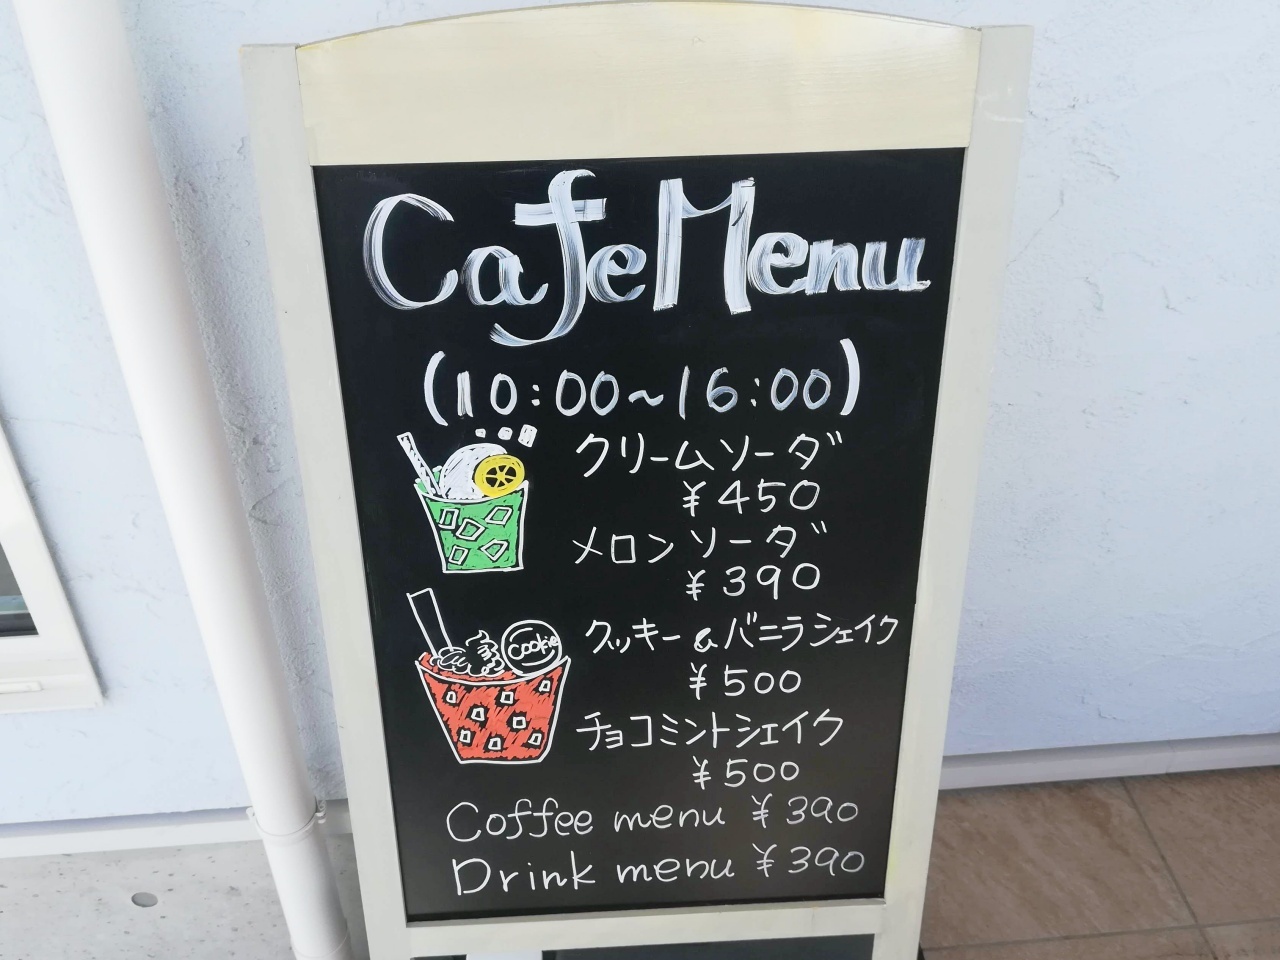 Cafe Menu
(10:00~16:00)
クリームソーダ
¥450
メロンソーダ
¥390
Cookie
クッキー&バニラシェイク
¥500
チョコミントシェイク
¥500
Coffee menu ¥390
Drink menu ¥390